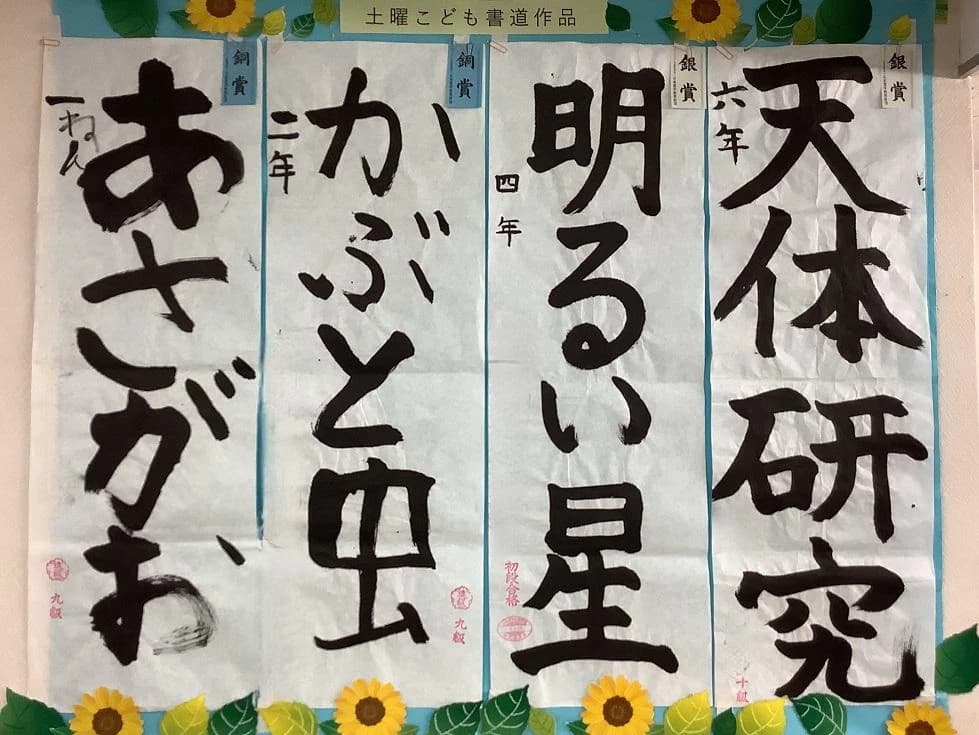 土曜こども書道作品
銀賞
天体研究
六年
十級
銀賞
明るい星
四年
初段合格
銅賞
かぶと虫
二年
九級
銅賞
あさがお
一ねん
九級